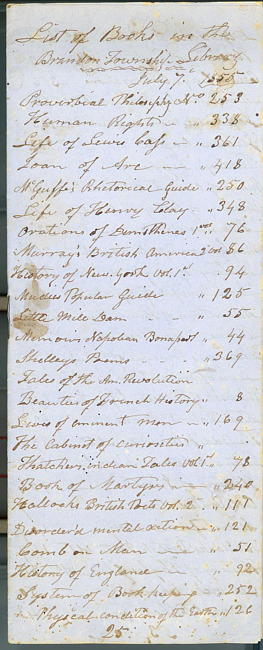 List of Books in the
Brandon Township Library
July 7. 1855
Proverbial Philosophy No 253
Human Rights " 338
Life of Lewis Cass " 361
Joan of Arc " 418
McGuffe's Rhetorical Guide " 250
Life of Henry Clay " 348
Orations of Demsthines 1 vol 76
Murray's British America 2 vol 86
History of New York Vol. 1st 94
Popular Guide " 125
Little Mill Dam " 55
Memours Napolean Bonapart " 44
Shelleys Poems " 369
Tales of the Am. Revolution
Beauties of French History " 8
Lives of eminent men " 169
The Cabinet of Curiosities "
Thatchers indian Tales Vol 1st " 78
Book of Martyrs " 240
Hallocks British Poets Vol. 2 " 117
Disorder'd mental action " 121
Comb on Man " 51
History of England " 92
System of Book keeping " 252
" Physcal condition of the Earth " 126
25